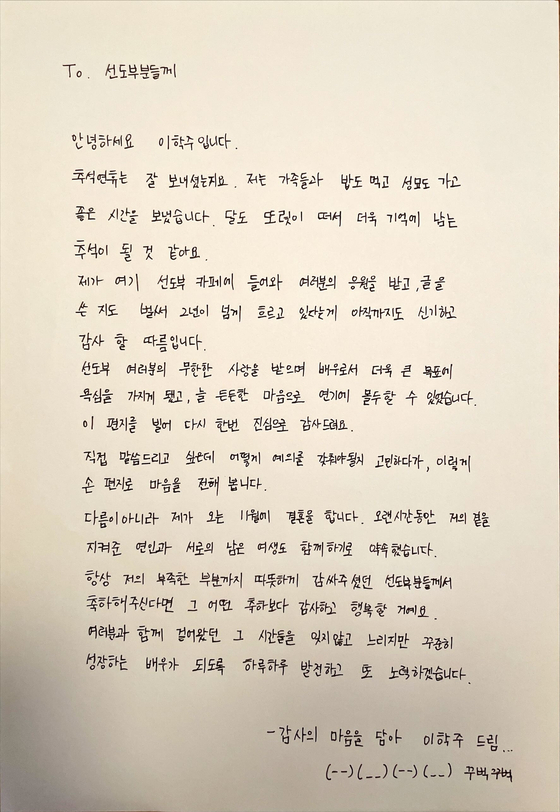 To. 선도부분들께
안녕하세요 이학주입니다.
추석연휴는 잘 보내셨는지요. 저는 가족들과 밥도 먹고 성묘도 가고
좋은 시간을 보냈습니다. 달도 또렷이 떠서 더욱 기억에 남는
추석이 될 것 같아요.
제가 여기 선도부 카페에 들어와 여러분의 응원을 받고, 글을
쓴 지도 벌써 2년이 넘게 흐르고 있다는게 아직까지도 신기하고
감사 할 따름입니다.
선도부 여러분의 무한한 사랑을 받으며 배우로서 더욱 큰 목표에
욕심을 가지게 됐고, 늘 든든한 마음으로 연기에 몰두할 수 있었습니다.
이 편지를 빌어 다시 한번 진심으로 감사드려요.
직접 말씀드리고 싶은데 어떻게 예의를 갖춰야될지 고민하다가, 이렇게
손 편지로 마음을 전해 봅니다.
다름이아니라 제가 오는 11월에 결혼을 합니다. 오랜시간동안 저의 곁을
지켜준 연인과 서로의 남은 여생도 함께하기로 약속했습니다.
항상 저의 부족한 부분까지 따뜻하게 감싸주셨던 선도부분들께서
축하해주신다면 그 어떤 축하보다 감사하고 행복할 거예요.
여러분과 함께 걸어왔던 그 시간들을 잊지않고 느리지만 꾸준히
성장하는 배우가 되도록 하루하루 발전하고 또 노력하겠습니다.
-감사의 마음을 담아 이학주 드림...
(--)(__)(--)(__) 꾸벅꾸벅